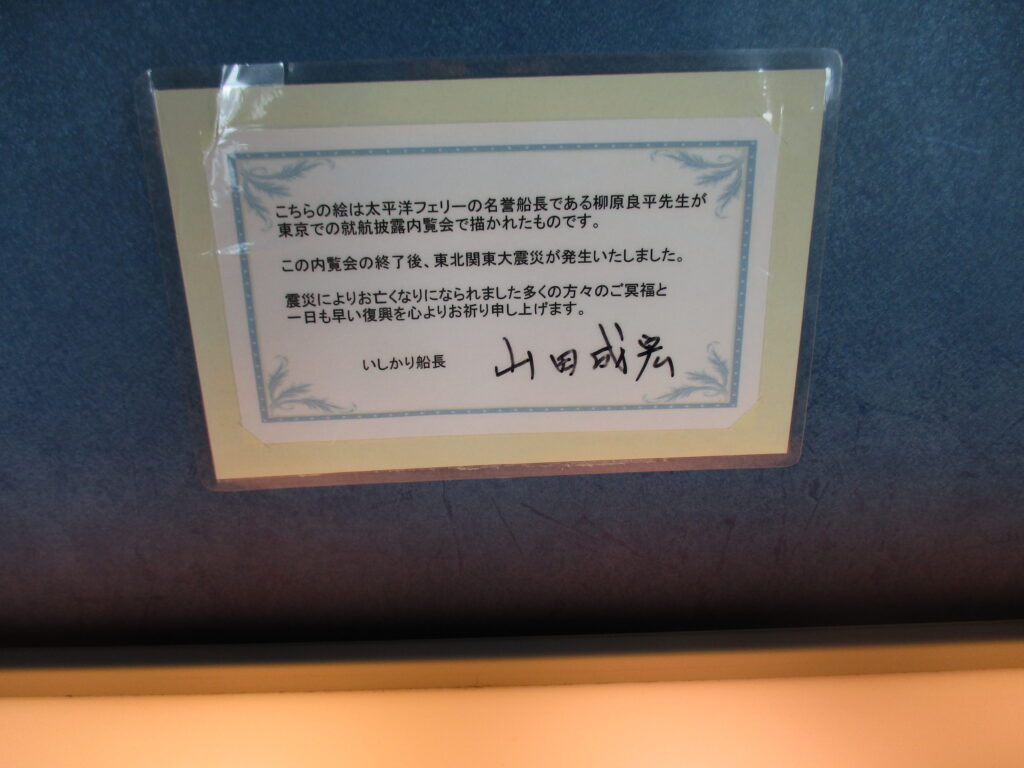 こちらの絵は太平洋フェリーの名誉船長である柳原良平先生が
東京での就航披露内覧会で描かれたものです。
この内覧会の終了後、東北関東大震災が発生いたしました。
震災によりお亡くなりになられました多くの方々のご冥福と
一日も早い復興を心よりお祈り申し上げます。
いしかり船長 山田成宏